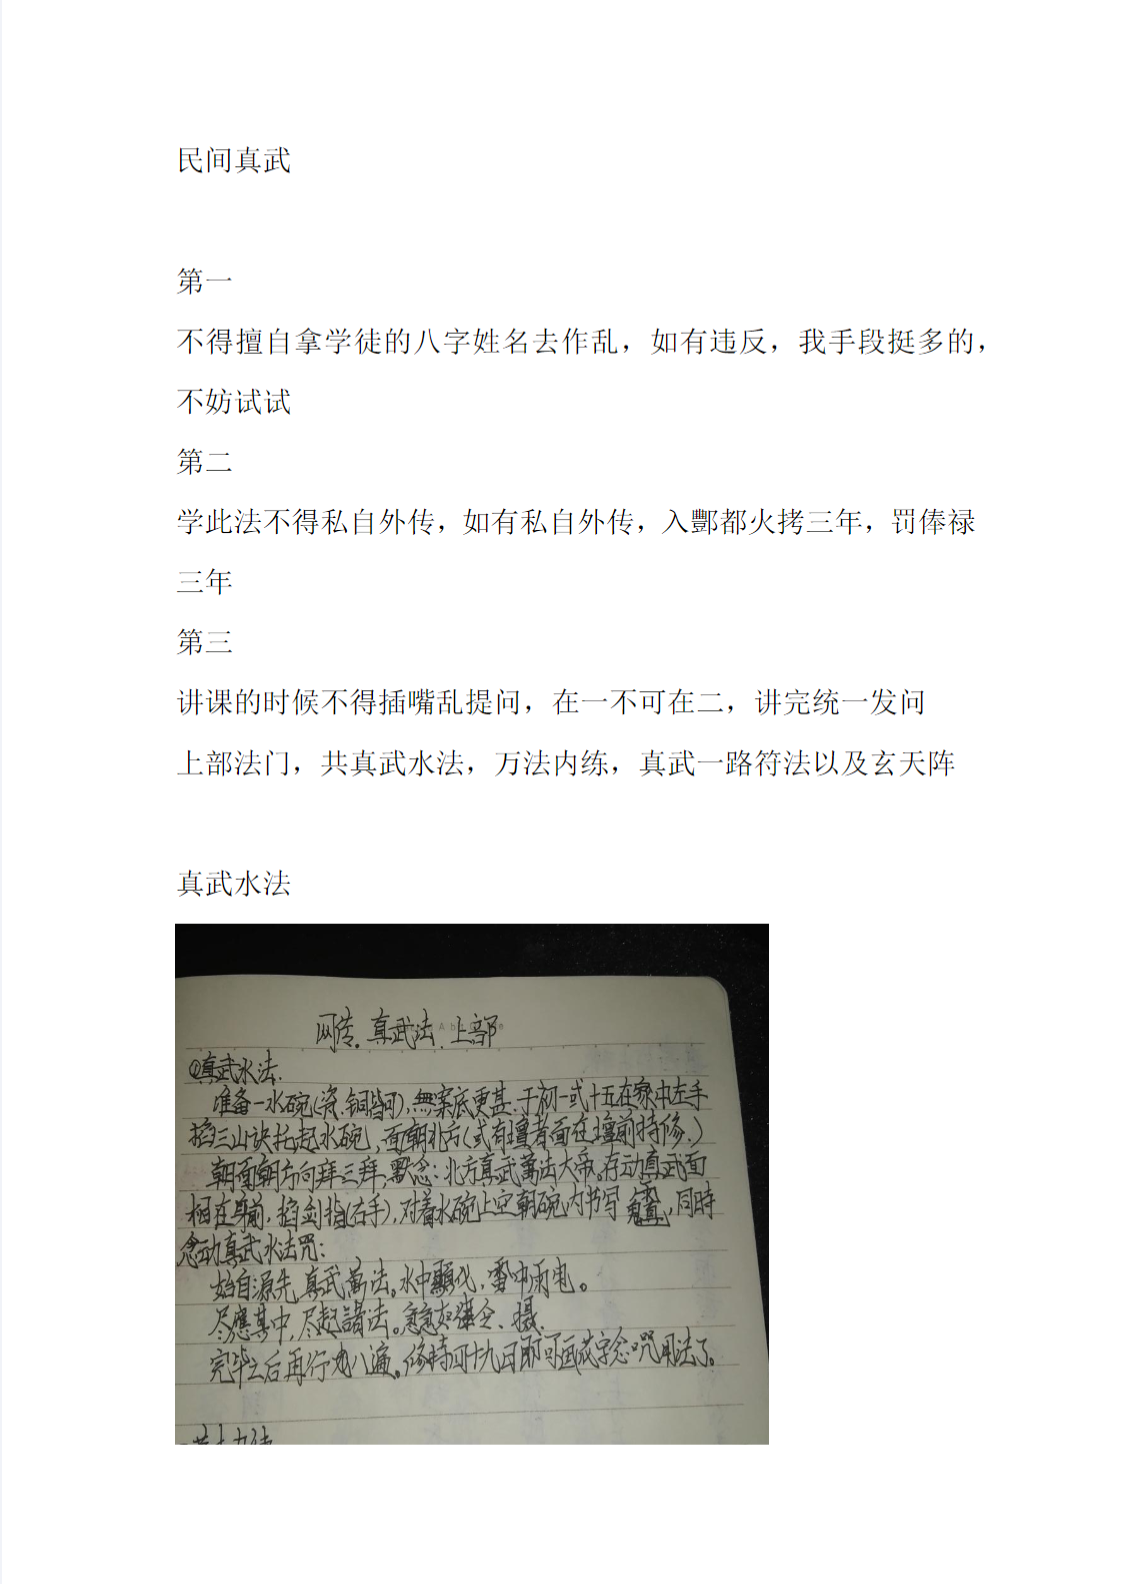 民间真武
第一
不得擅自拿学徒的八字姓名去作乱，如有违反，我手段挺多的，
不妨试试
第二
学此法不得私自外传，如有私自外传，入酆都火拷三年，罚俸禄
三年
第三
讲课的时候不得插嘴乱提问，在一不可在二，讲完统一发问
上部法门，共真武水法，万法内练，真武一路符法以及玄天阵
真武水法
网传.真武法.上部
①真武水法.
准备一水碗(瓷、铜皆可),無案底更甚.于初一或十五在家中左手
掐三山诀托起水碗,面朝北方(或有壇者面在壇前持修.)
朝面朝方向拜三拜,默念:北方真武萬法大帝。存动真武面
相在身前,掐剑指(右手),对着水碗上空朝碗内书写,同時
念动真武水法咒:
始自源先,真武萬法。水中顯化,雷中雨电。
尽應其中,尽起諸法。急急如律令、摄.
完毕之后再行八遍。修持四十九日即可画花字念咒用法了。